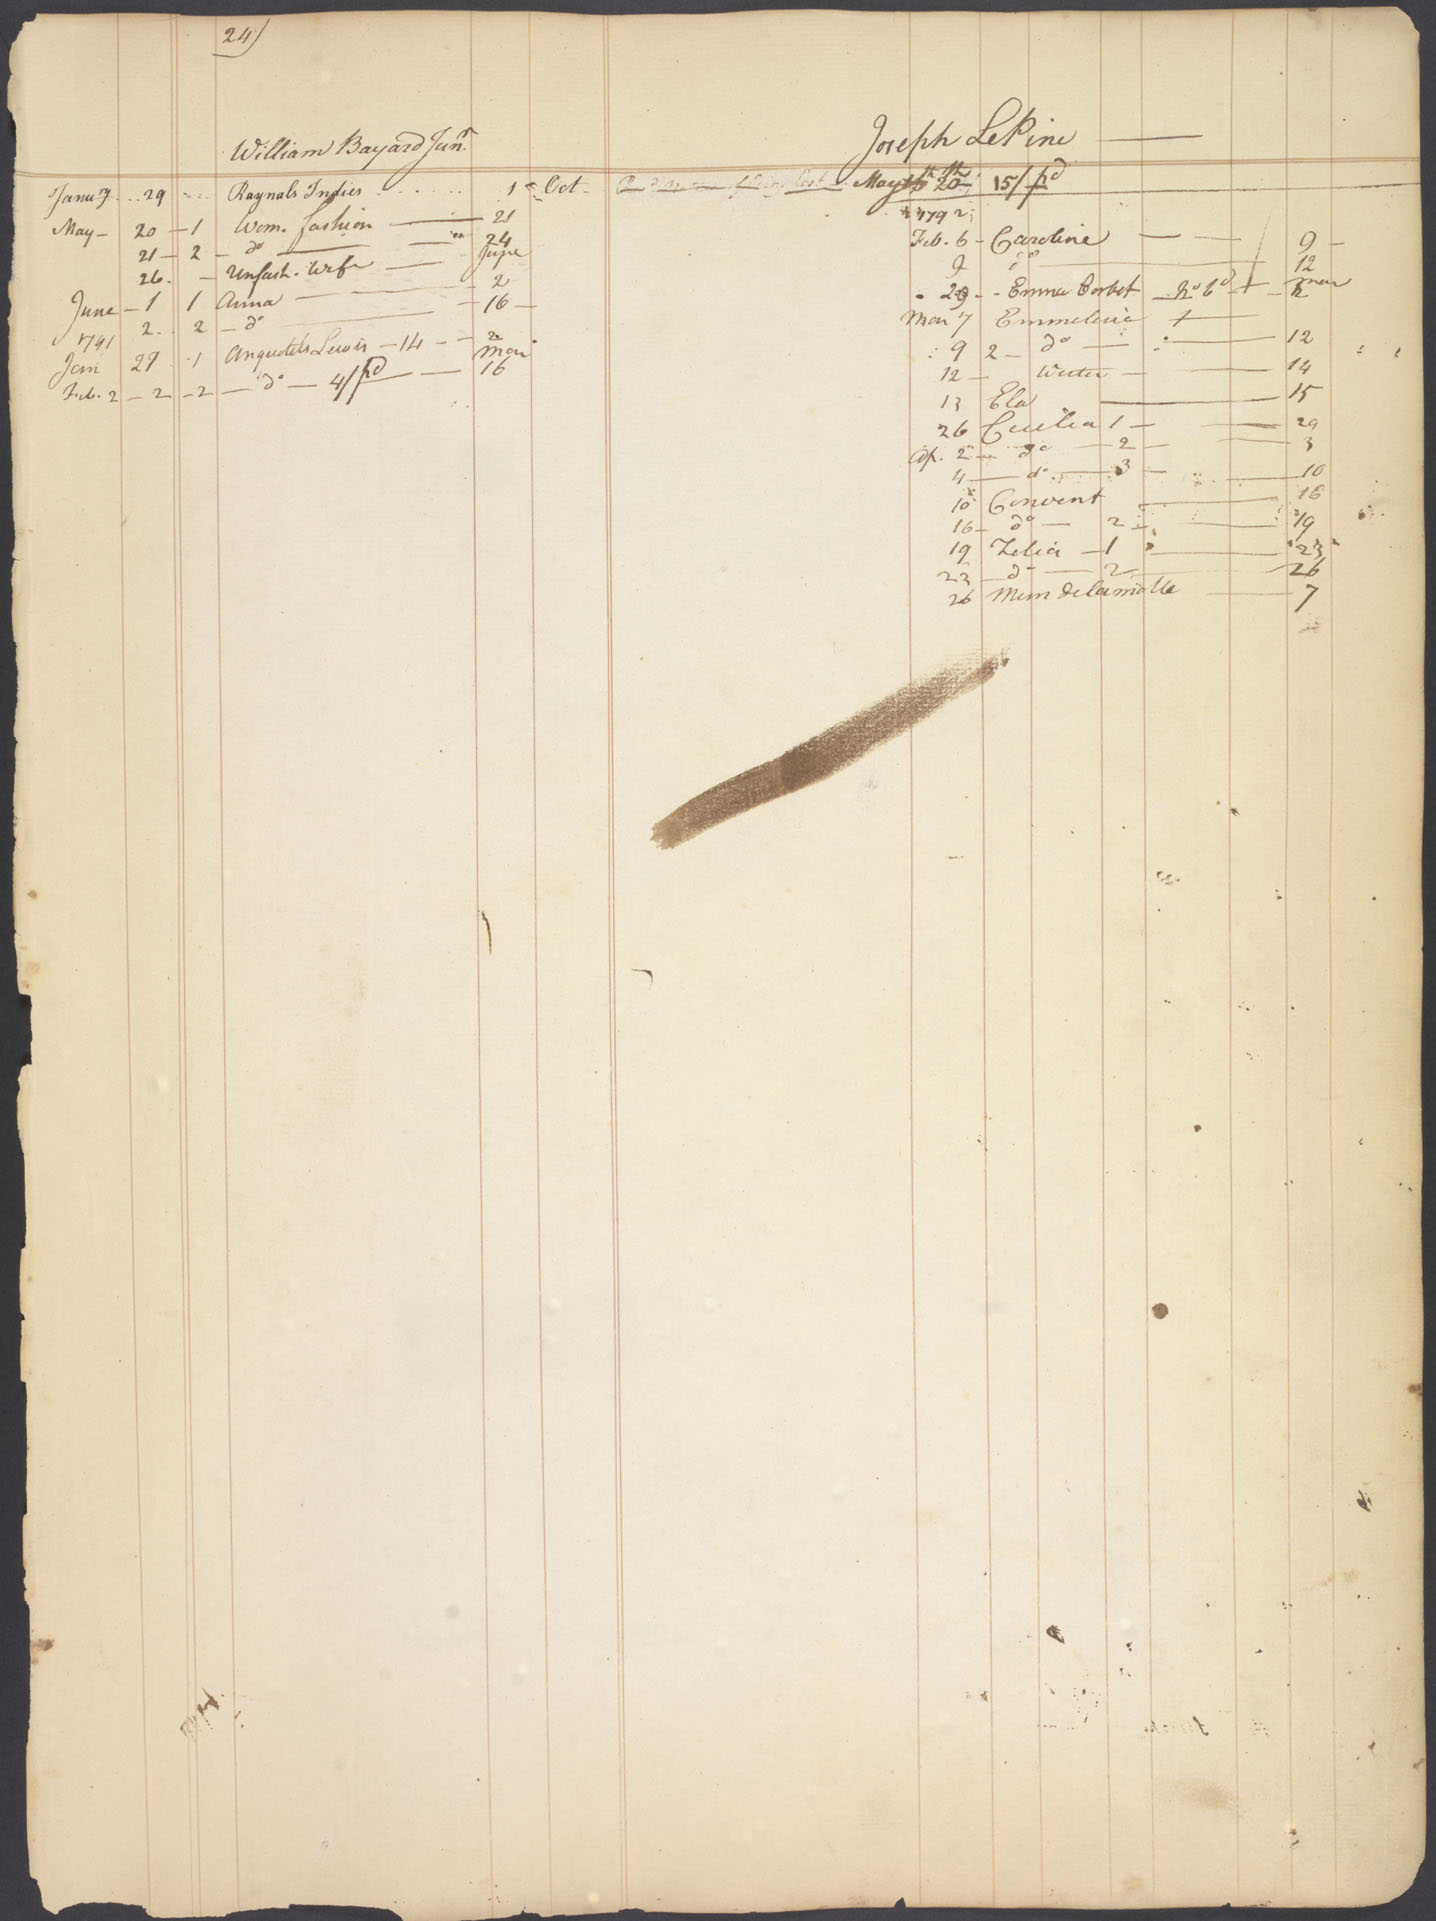 24)
William Bayard Junr.
Janury .. 29 Raynals Indies 1 Oct
May - 20 - 1 Wom. fashion 21
21 - 2 - do 24
26. - Unfash. Wife June 2
June - 1 1 Anna
2 .. 2 - do 16 -
1791
Jan 29 1 Anquetils Lewis - 14 - -
Feb. 2 - 2 - 2 - do - 4/pd Mar 16
Joseph LePine
May 20th 15/pd
1792
Feb. 6 - Caroline 9 -
9 do 12
29 - - Emma Corbet
Mar 7 Emmeline
9 2 - do 12
12 - Werter - 14
13 Ela 15
26 Cecilia 1 - 29
Ap. 2 - do - 2 - 3
4 - do - 3 - 10
10 Convent 16
16 - do - 2 - 19
19 Zelia - 1 23
23 - do - 2 26
26 Mem de la motte 7